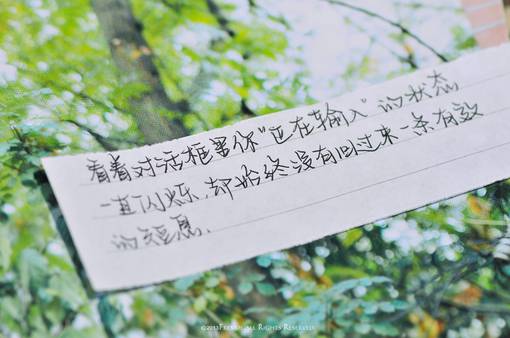 看着对话框里你“正在输入”的状态
一直闪烁,却始终没有回过来一条有效
的短息.
©2013 All Rights Reserved